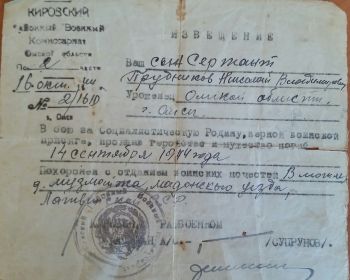 КИРОВСКИЙ
Районный Военный
Комиссариат
Омской области
По 2 части
16 окт. 44
№ 2/1610
г. Омск
ИЗВЕЩЕНИЕ
Ваш сын Сержант
Трубников Николай Владимирович
Уроженец Омской област.
г. Омск
В бою за Социалистическую Родину, верной воинской
присяге, проявив геройство и мужество погиб
14 сентября 1944 года
Похоронен с отданием воинских почестей В могиле
д. Музможта, Мадонского уезда,
Латвийская ССР
КИРОВСКИЙ РАЙВОЕНКОМ
/СУПРУНОВ/